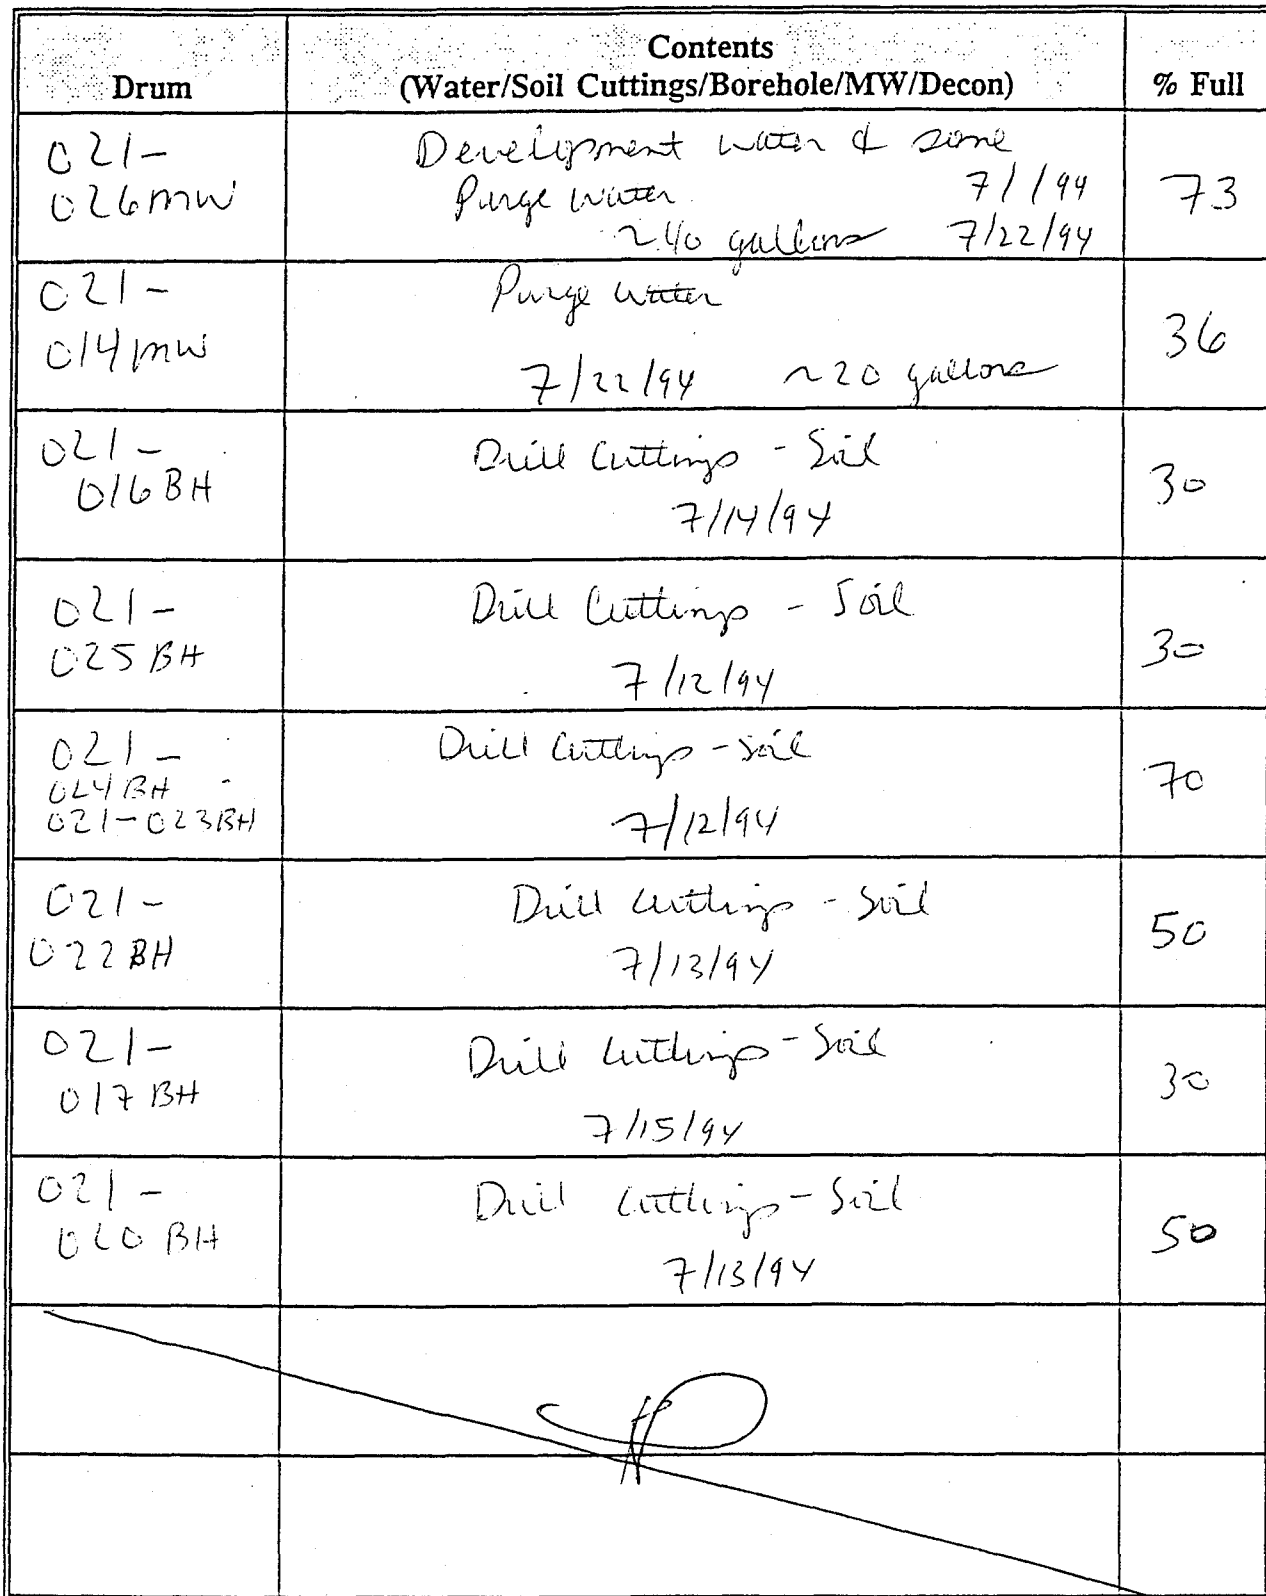 Drum
Contents
(Water/Soil Cuttings/Borehole/MW/Decon)
% Full
021-
026MW
Development water & some
Purge water 7/1/94
~40 gallons 7/22/94
73
021-
014MW
Purge water
7/22/94 ~20 gallons
36
021-
016BH
Drill Cuttings - Soil
7/14/94
30
021-
025BH
Drill Cuttings - Soil
7/12/94
30
021-
024BH
021-023BH
Drill Cuttings - Soil
7/12/94
70
021-
022BH
Drill Cuttings - Soil
7/13/94
50
021-
017BH
Drill Cuttings - Soil
7/15/94
30
021-
020BH
Drill Cuttings - Soil
7/13/94
50